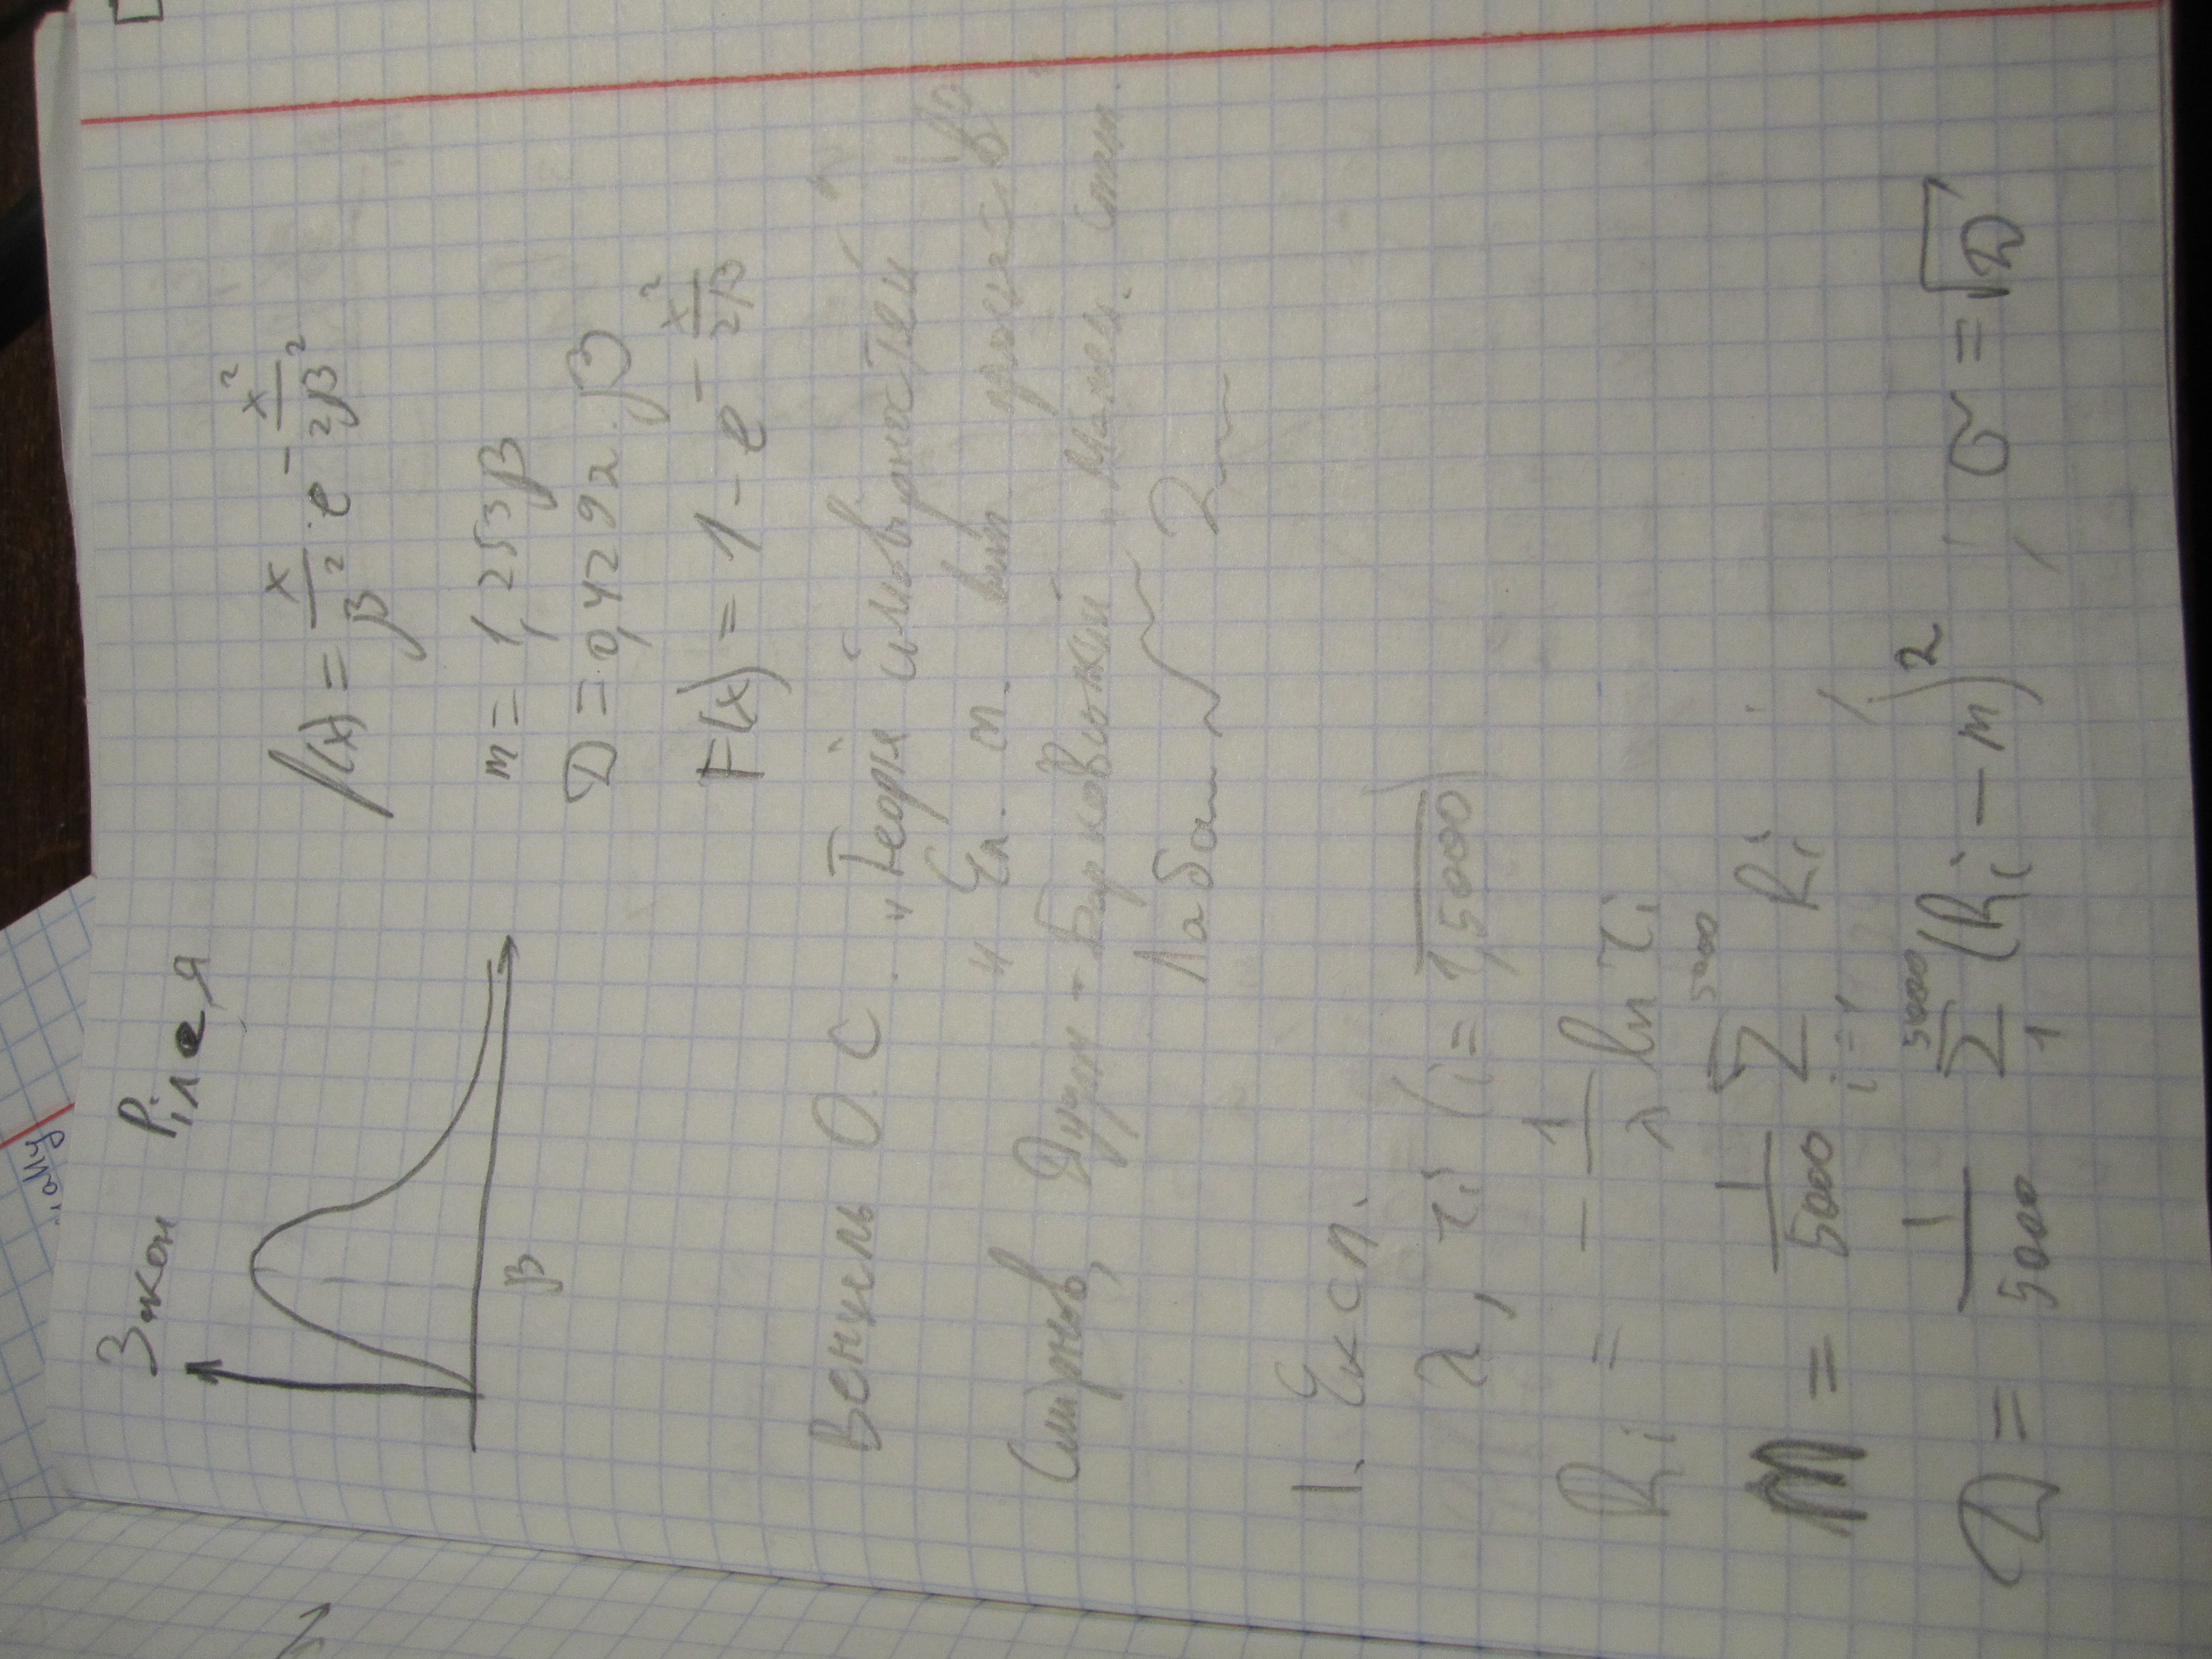 ally
Закон Рілея
f(x) = x/β² · e^(-x²/2β²)
β
m = 1,253β
D = 0,4292 · β
F(x) = 1 - e^(-x²/2β)
Венцель О.С. „Теорія ймовірностей"
„ Еп. м. вип. процесів"
Смірнов, Дунін-Барковський „Матем. стат.
Лаба 2
1. Експ.
λ, r_i (i = 1,5000)
R_i = - 1/λ ln r_i
M = 1/5000 Σ_{i=1}^{5000} R_i ;
D = 1/5000 Σ_1^{5000} (R_i - m)² ; σ = √D